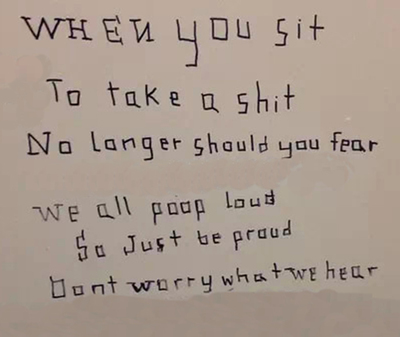 WHEN you sit
To take a shit
No longer should you fear
We all poop loud
So Just be proud
Dont worry what we hear